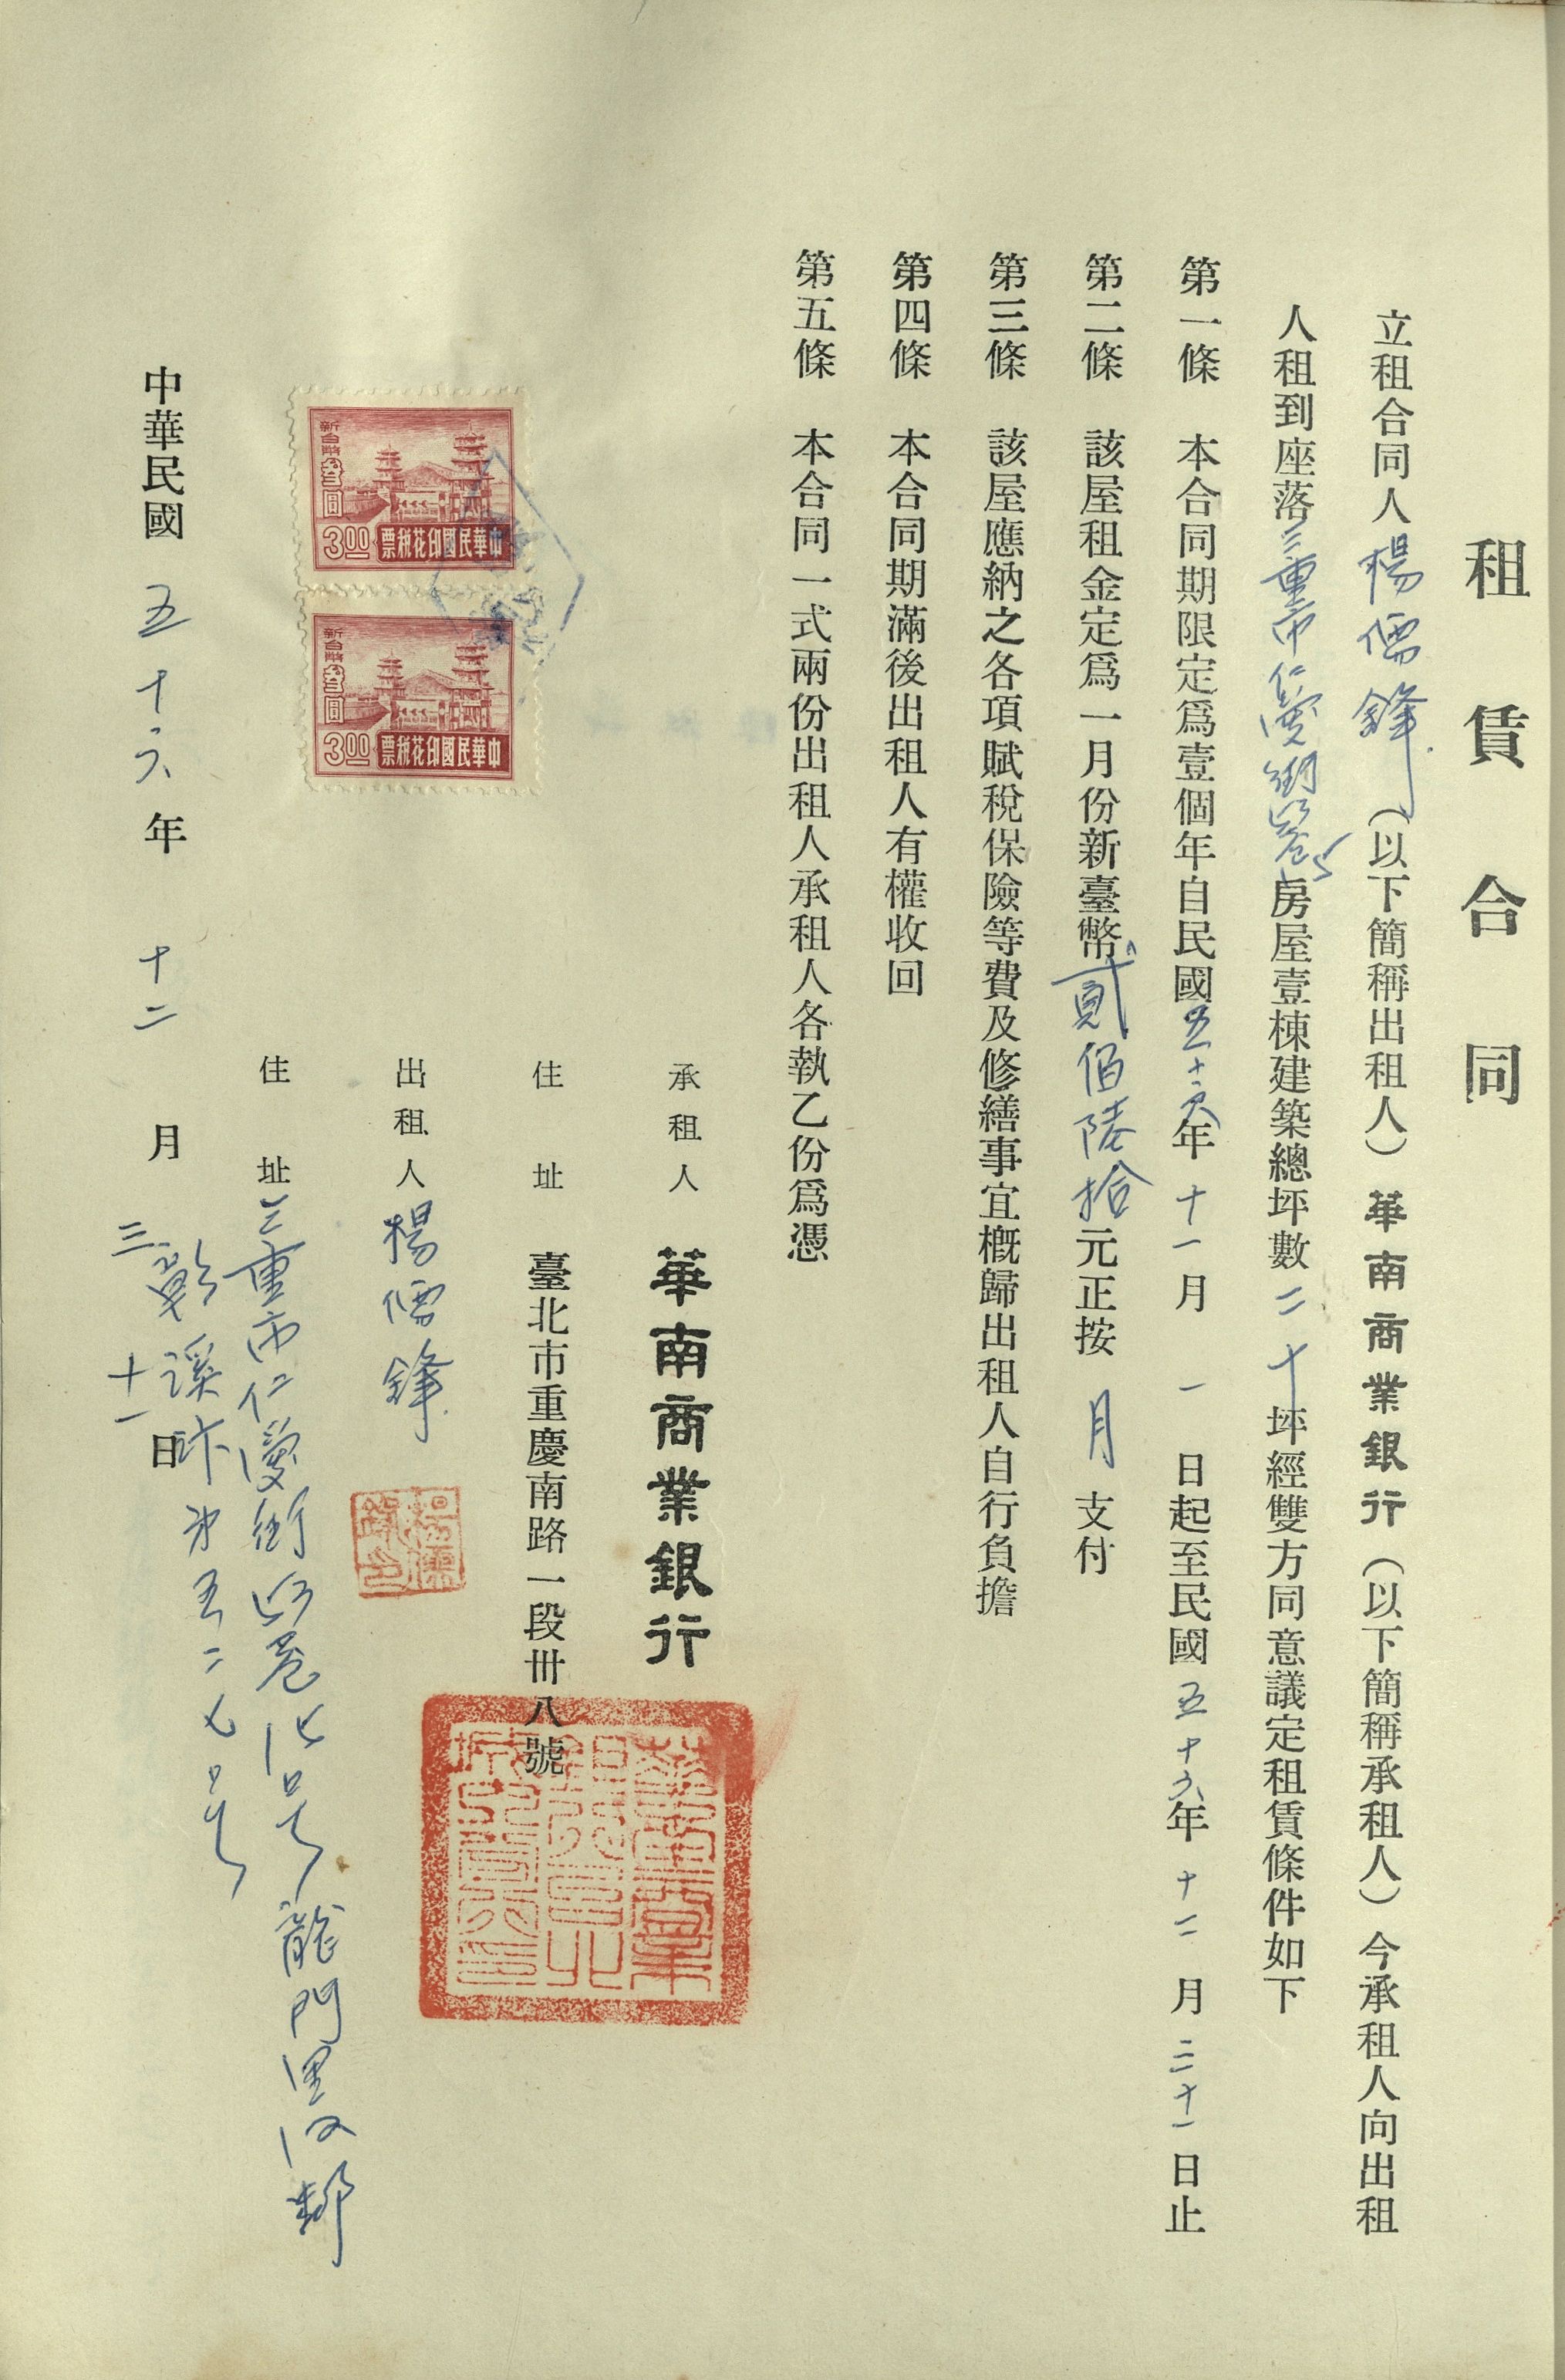 租賃合同
立租合同人楊儒鋒（以下簡稱出租人）華南商業銀行（以下簡稱承租人）今承租人向出租
人租到座落三重市仁愛街 巷 房屋壹棟建築總坪數二十坪經雙方同意議定租賃條件如下
第一條 本合同期限定爲壹個年自民國五十六年十一月一日起至民國五十六年十二月三十一日止
第二條 該屋租金定爲一月份新臺幣貳佰陸拾元正按月支付
第三條 該屋應納之各項賦稅保險等費及修繕事宜概歸出租人自行負擔
第四條 本合同期滿後出租人有權收回
第五條 本合同一式兩份出租人承租人各執乙份爲憑
承租人 華南商業銀行
住址 臺北市重慶南路一段卅八號
出租人 楊儒鋒
住址 三重市仁愛街 巷 號 龍門里 鄰
新台幣叁圓
3.00 中華民國印花稅票
新台幣叁圓
3.00 中華民國印花稅票
中華民國五十六年十二月三十一日